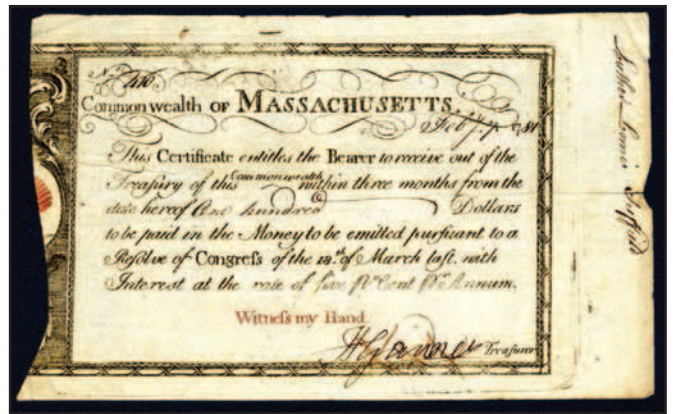 No. 410
Commonwealth OF MASSACHUSETTS.
Feb'y. 7 1781
This Certificate entitles the Bearer to receive out of the
Treasury of this Commonwealth within three months from the
date hereof One hundred Dollars
to be paid in the Money to be emitted pursuant to a
Resolve of Congress of the 18.th of March last, with
Interest at the rate of five Pr Cent Pr Annum.
Witness my Hand.
H Gardner Treasurer
Luther Loomis Suffield